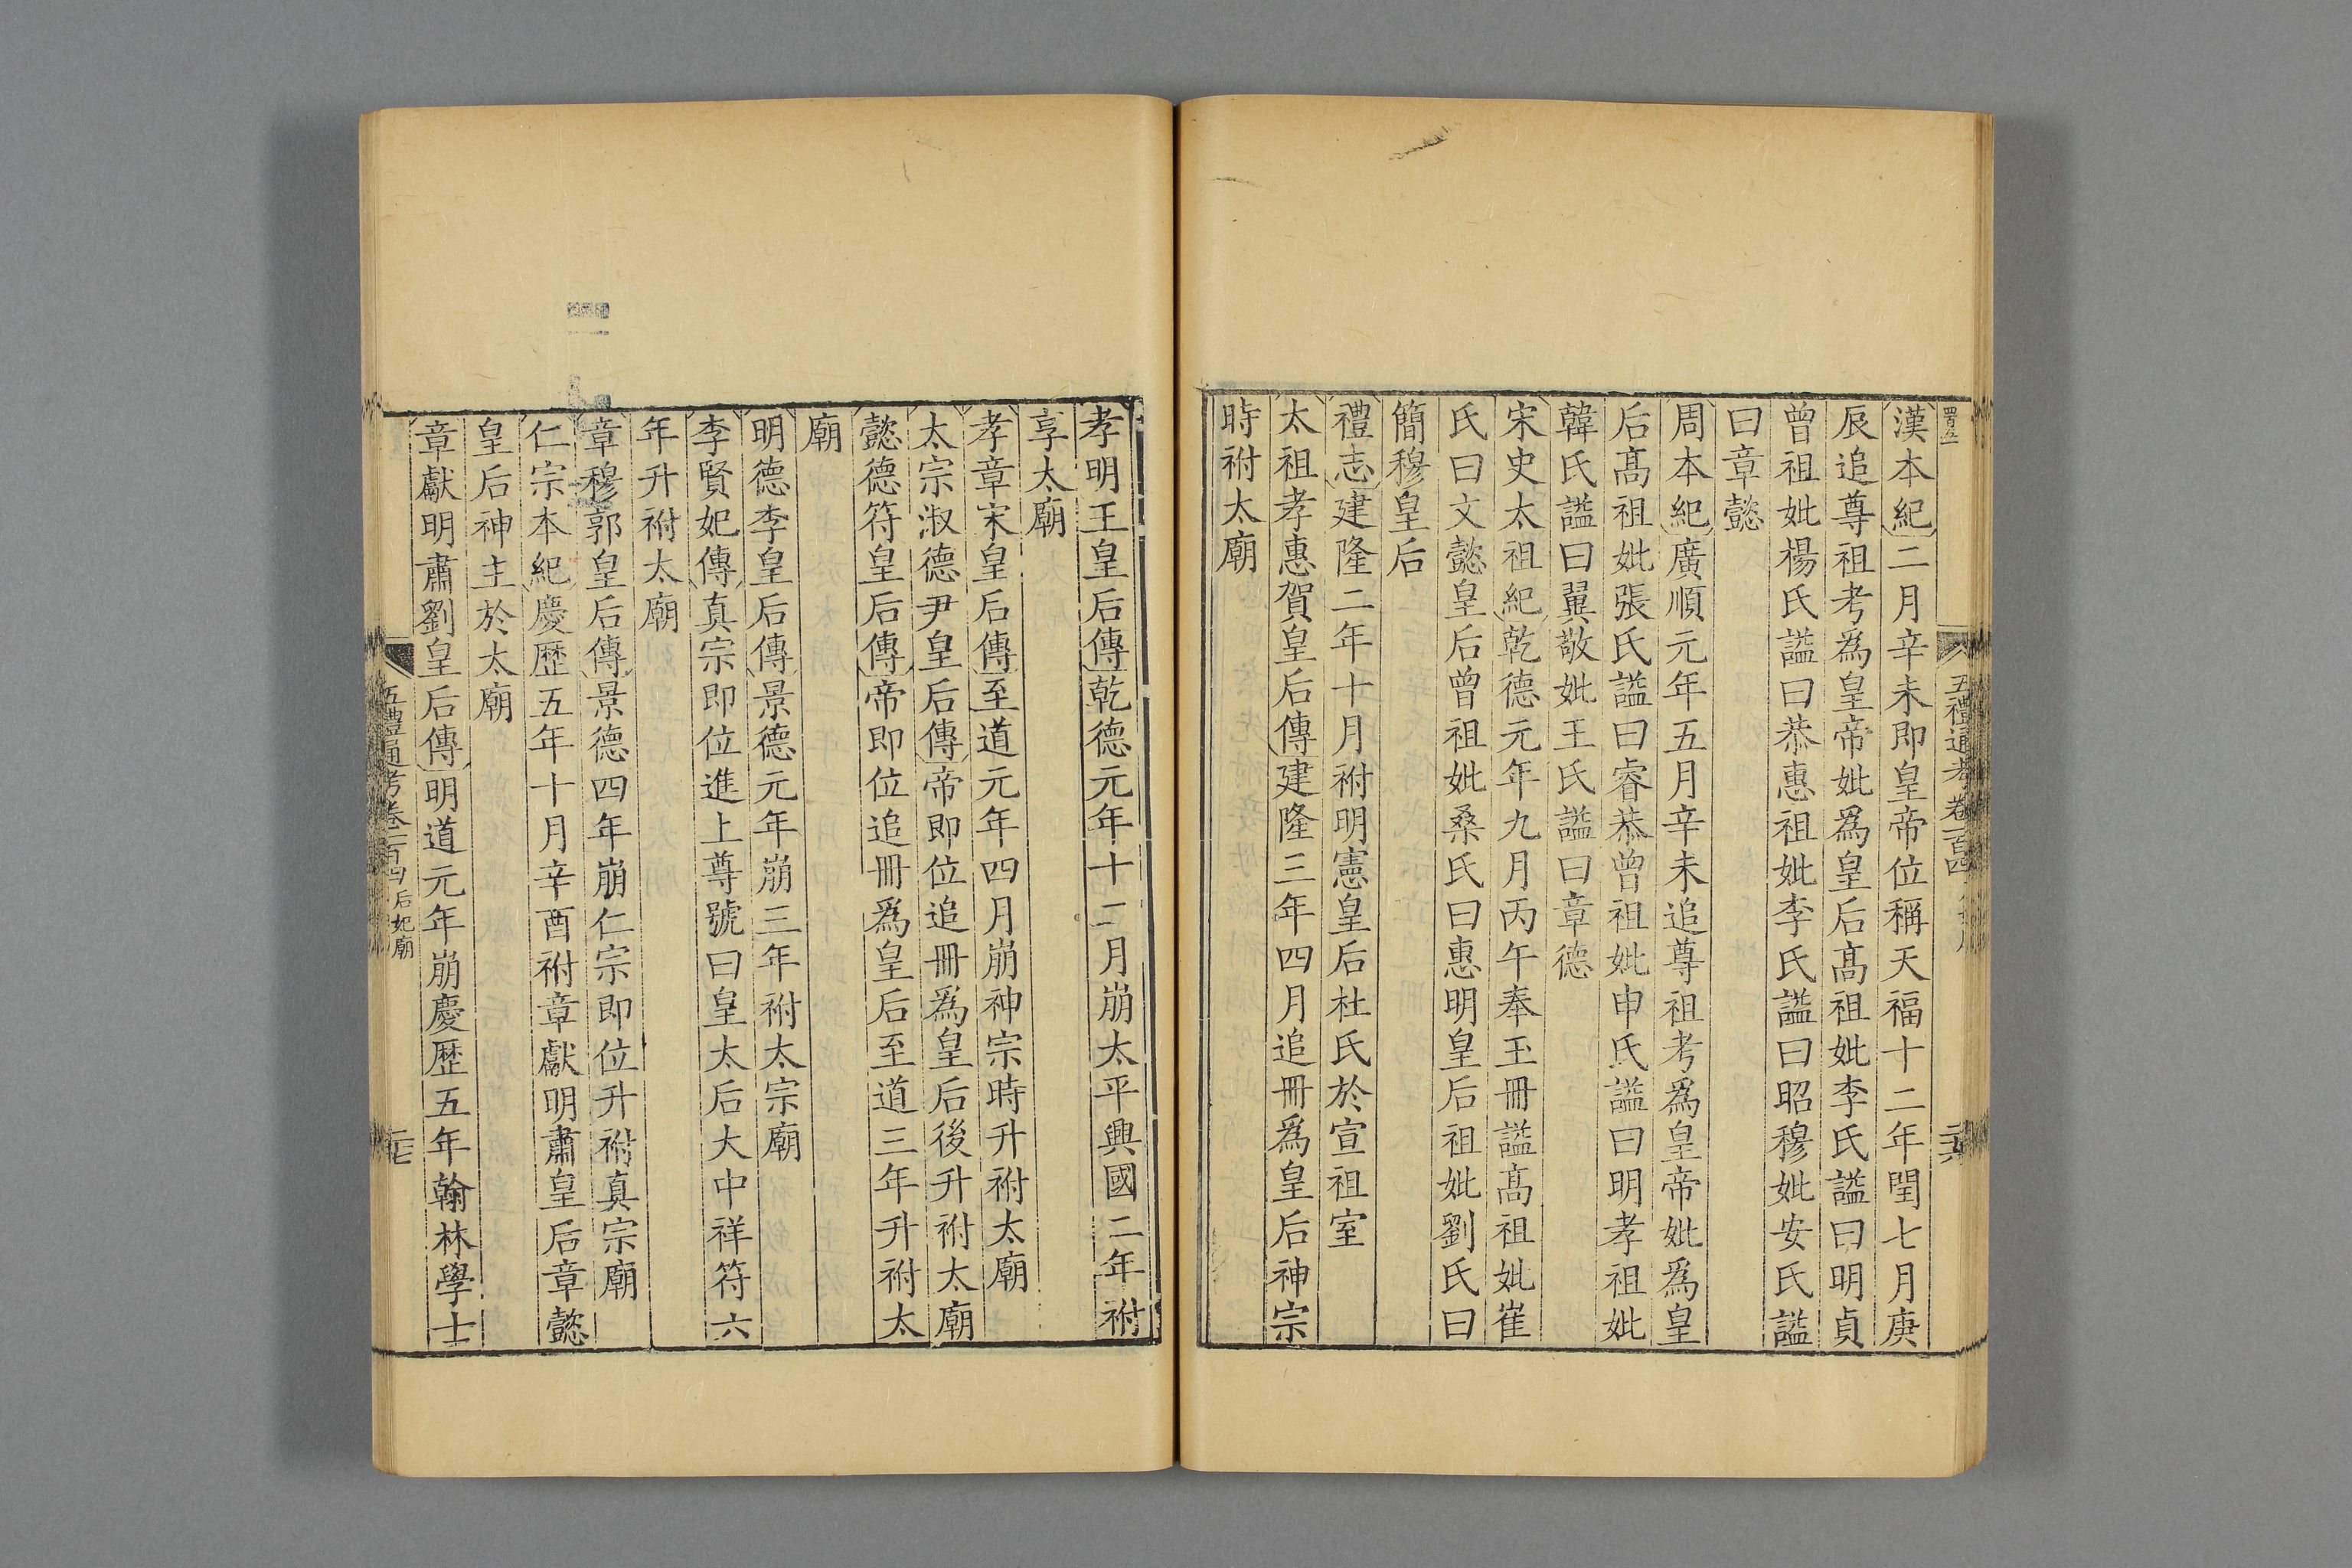 五禮通考卷一百四
漢本紀二月辛未即皇帝位稱天福十二年閏七月庚
辰追尊祖考爲皇帝妣爲皇后髙祖妣李氏謚曰明貞
曾祖妣楊氏謚曰恭惠祖妣李氏謚曰昭穆妣安氏謚
曰章懿
周本紀廣順元年五月辛未追尊祖考爲皇帝妣爲皇
后髙祖妣張氏謚曰睿恭曾祖妣申氏謚曰明孝祖妣
韓氏謚曰翼敬妣王氏謚曰章德
宋史太祖紀乾德元年九月丙午奉玉冊謚髙祖妣崔
氏曰文懿皇后曾祖妣桑氏曰惠明皇后祖妣劉氏曰
簡穆皇后
禮志建隆二年十月祔明憲皇后杜氏於宣祖室
太祖孝惠賀皇后傳建隆三年四月追冊爲皇后神宗
時祔太廟
孝明王皇后傳乾德元年十二月崩太平興國二年祔
享太廟
孝章宋皇后傳至道元年四月崩神宗時升祔太廟
太宗淑德尹皇后傳帝即位追冊爲皇后後升祔太廟
懿德符皇后傳帝即位追冊爲皇后至道三年升祔太
廟
明德李皇后傳景德元年崩三年祔太宗廟
李賢妃傳真宗即位進上尊號曰皇太后大中祥符六
年升祔太廟
章穆郭皇后傳景德四年崩仁宗即位升祔真宗廟
仁宗本紀慶歴五年十月辛酉祔章獻明肅皇后章懿
皇后神主於太廟
章獻明肅劉皇后傳明道元年崩慶歴五年翰林學士
五禮通考卷一百四 后妃廟